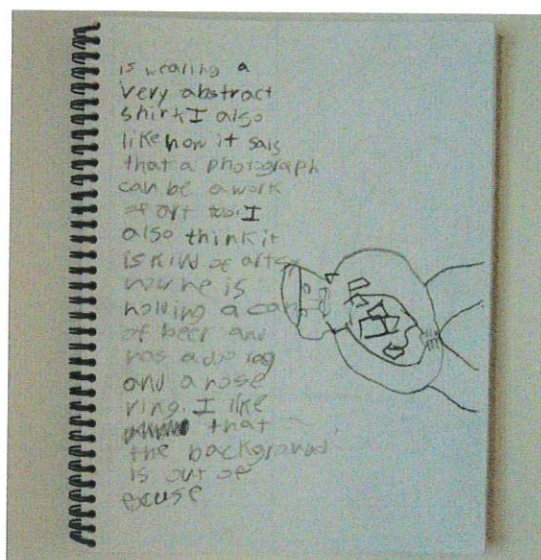 is wearing a
very abstract
shirt I also
like how it sais
that a photograph
can be a work
of art too. I
also think it
is kind of artsy
how he is
holding a can
of beer and
has a doo rag
and a nose
ring. I like
that
the background
is out of
excuse